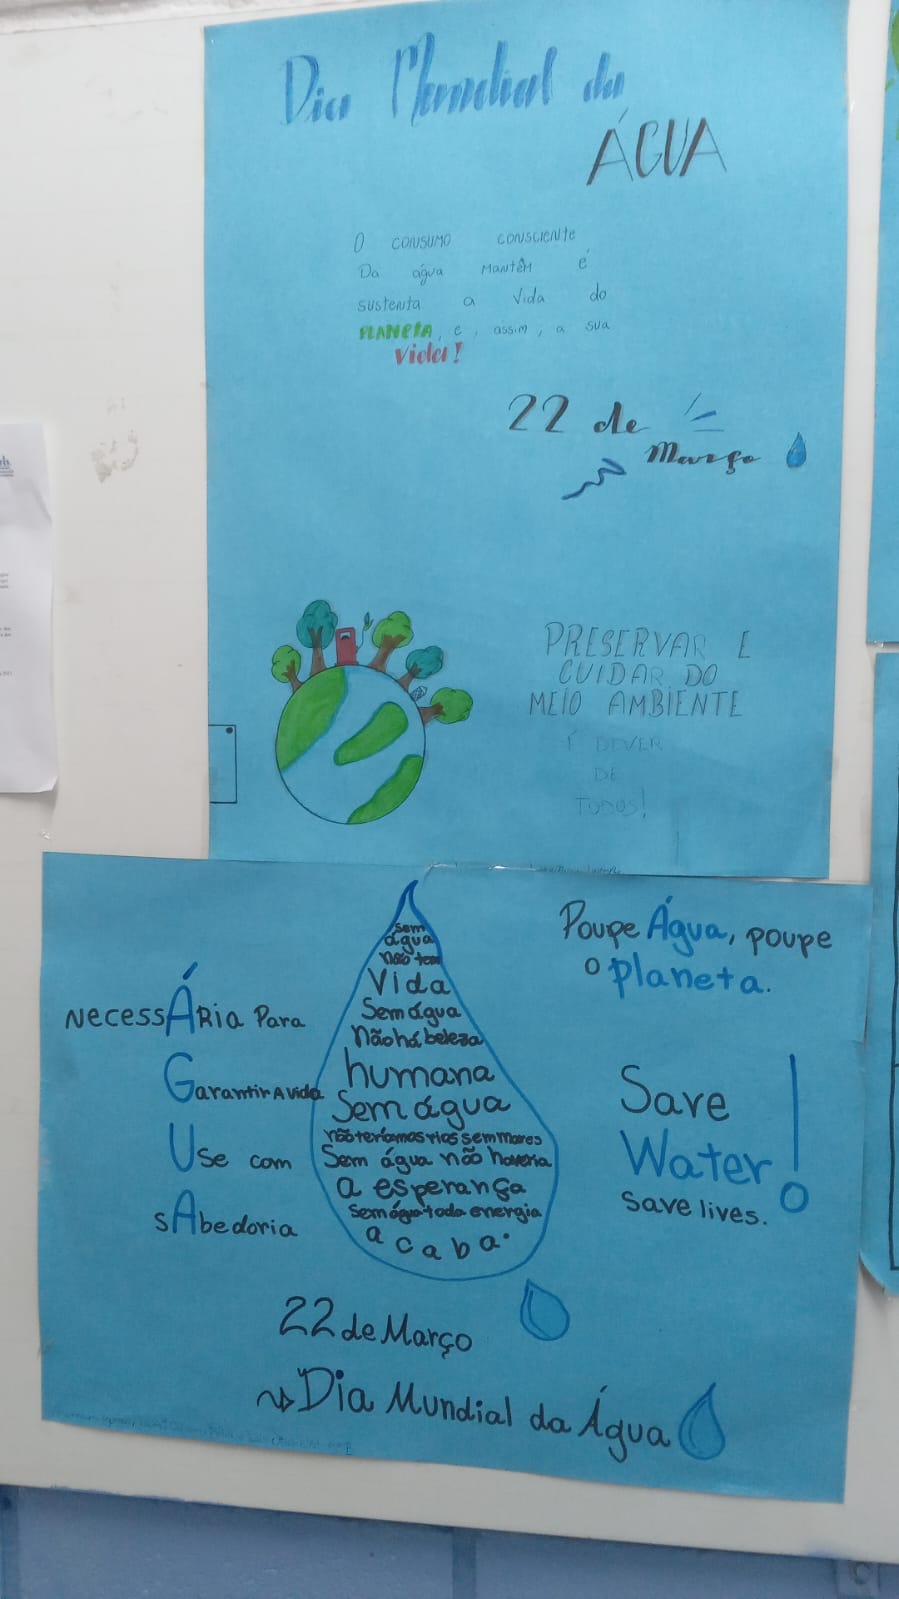 Dia Mundial da
ÁGUA
O CONSUMO CONSCIENTE
Da água MANTÊM E
SUSTENTA a Vida do
PLANETA, e, assim, a sua
Vida!
22 de
Março
PRESERVAR E
CUIDAR DO
MEIO AMBIENTE
É DEVER
DE
TODOS!
Sem
água
não tem
Vida
Sem água
Não há beleza
humana
Sem água
não teríamos rios sem mares
Sem água não haveria
a esperança
Sem água toda energia
acaba.
NecessÁRia Para
Garantir A vida
Use com
sAbedoria
Poupe Água, poupe
o planeta.
Save
Water!
Save lives.
22 de Março
Dia Mundial da Água